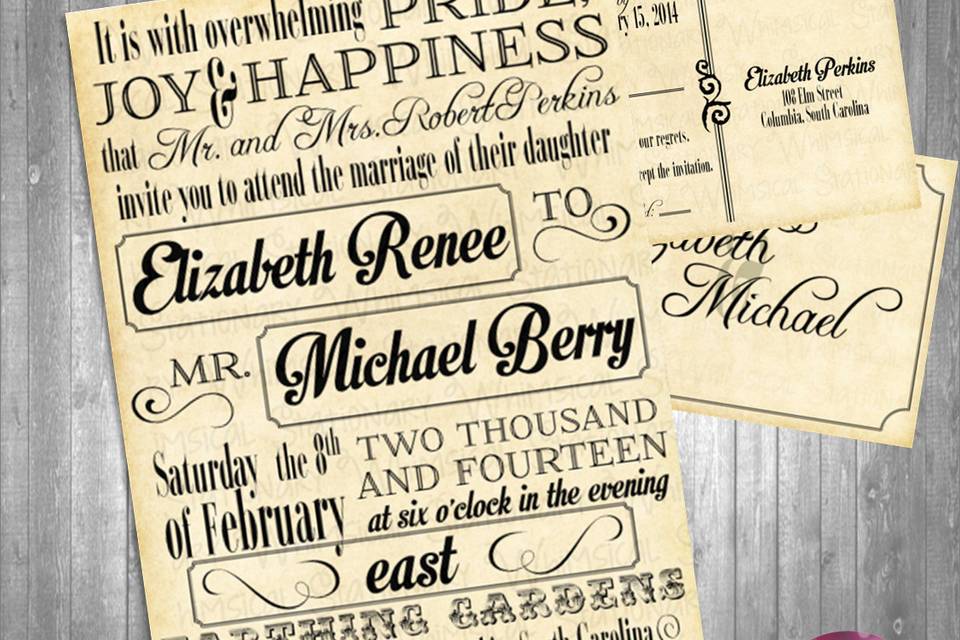 It is with overwhelming PRIDE,
JOY & HAPPINESS
that Mr. and Mrs. Robert Perkins
invite you to attend the marriage of their daughter
Elizabeth Renee TO
MR. Michael Berry
Saturday the 8th
of February
TWO THOUSAND
AND FOURTEEN
at six o'clock in the evening
east
GARDENS
South Carolina
15, 2014
our regrets.
the invitation.
Elizabeth Perkins
108 Elm Street
Columbia, South Carolina
Michael